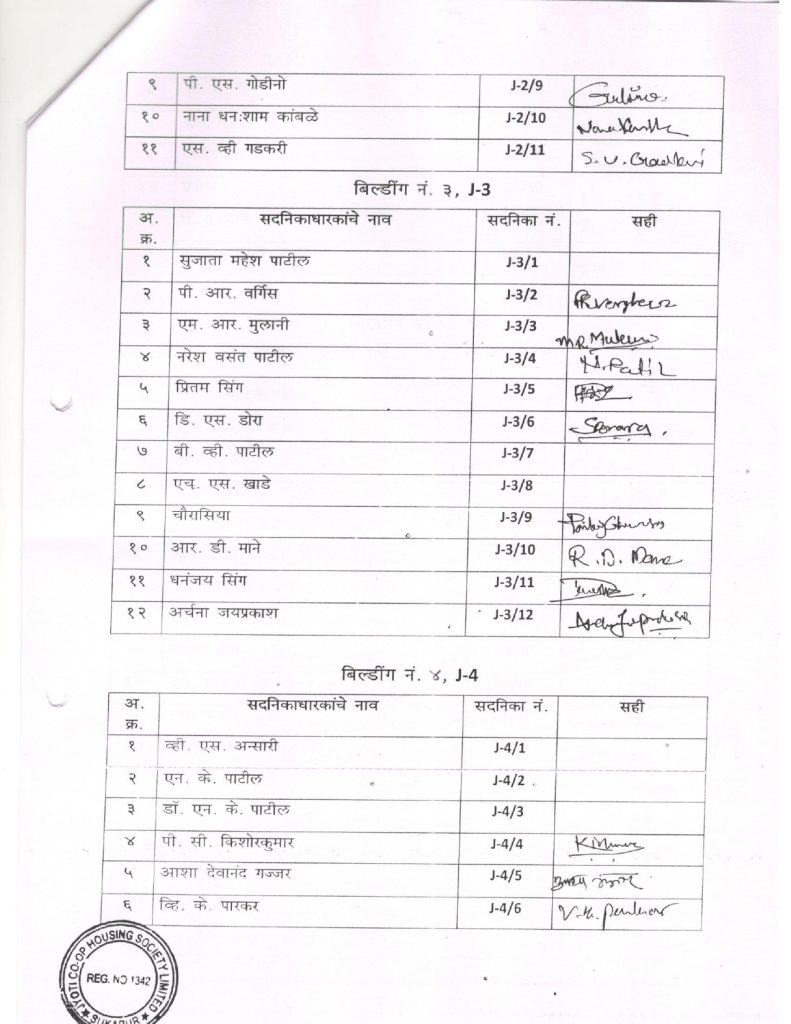 ९ पी. एस. गोडीनो J-2/9
१० नाना धन:शाम कांबळे J-2/10
११ एस. व्ही गडकरी J-2/11 S. V. Gadkari
बिल्डींग नं. ३, J-3
अ. क्र. सदनिकाधारकांचे नाव सदनिका नं. सही
१ सुजाता महेश पाटील J-3/1
२ पी. आर. वर्गिस J-3/2
३ एम. आर. मुलानी J-3/3
४ नरेश वसंत पाटील J-3/4 N. Patil
५ प्रितम सिंग J-3/5
६ डि. एस. डोरा J-3/6
७ बी. व्ही. पाटील J-3/7
८ एच. एस. खाडे J-3/8
९ चौरासिया J-3/9
१० आर. डी. माने J-3/10 R. D. Mane
११ धनंजय सिंग J-3/11
१२ अर्चना जयप्रकाश J-3/12
बिल्डींग नं. ४, J-4
अ. क्र. सदनिकाधारकांचे नाव सदनिका नं. सही
१ व्ही. एस. अन्सारी J-4/1
२ एन. के. पाटील J-4/2
३ डॉ. एन. के. पाटील J-4/3
४ पी. सी. किशोरकुमार J-4/4
५ आशा देवानंद गज्जर J-4/5
६ व्हि. के. पारकर J-4/6
JYOTI CO-OP HOUSING SOCIETY LIMITED
REG. NO 1342
★ SUKAPUR ★